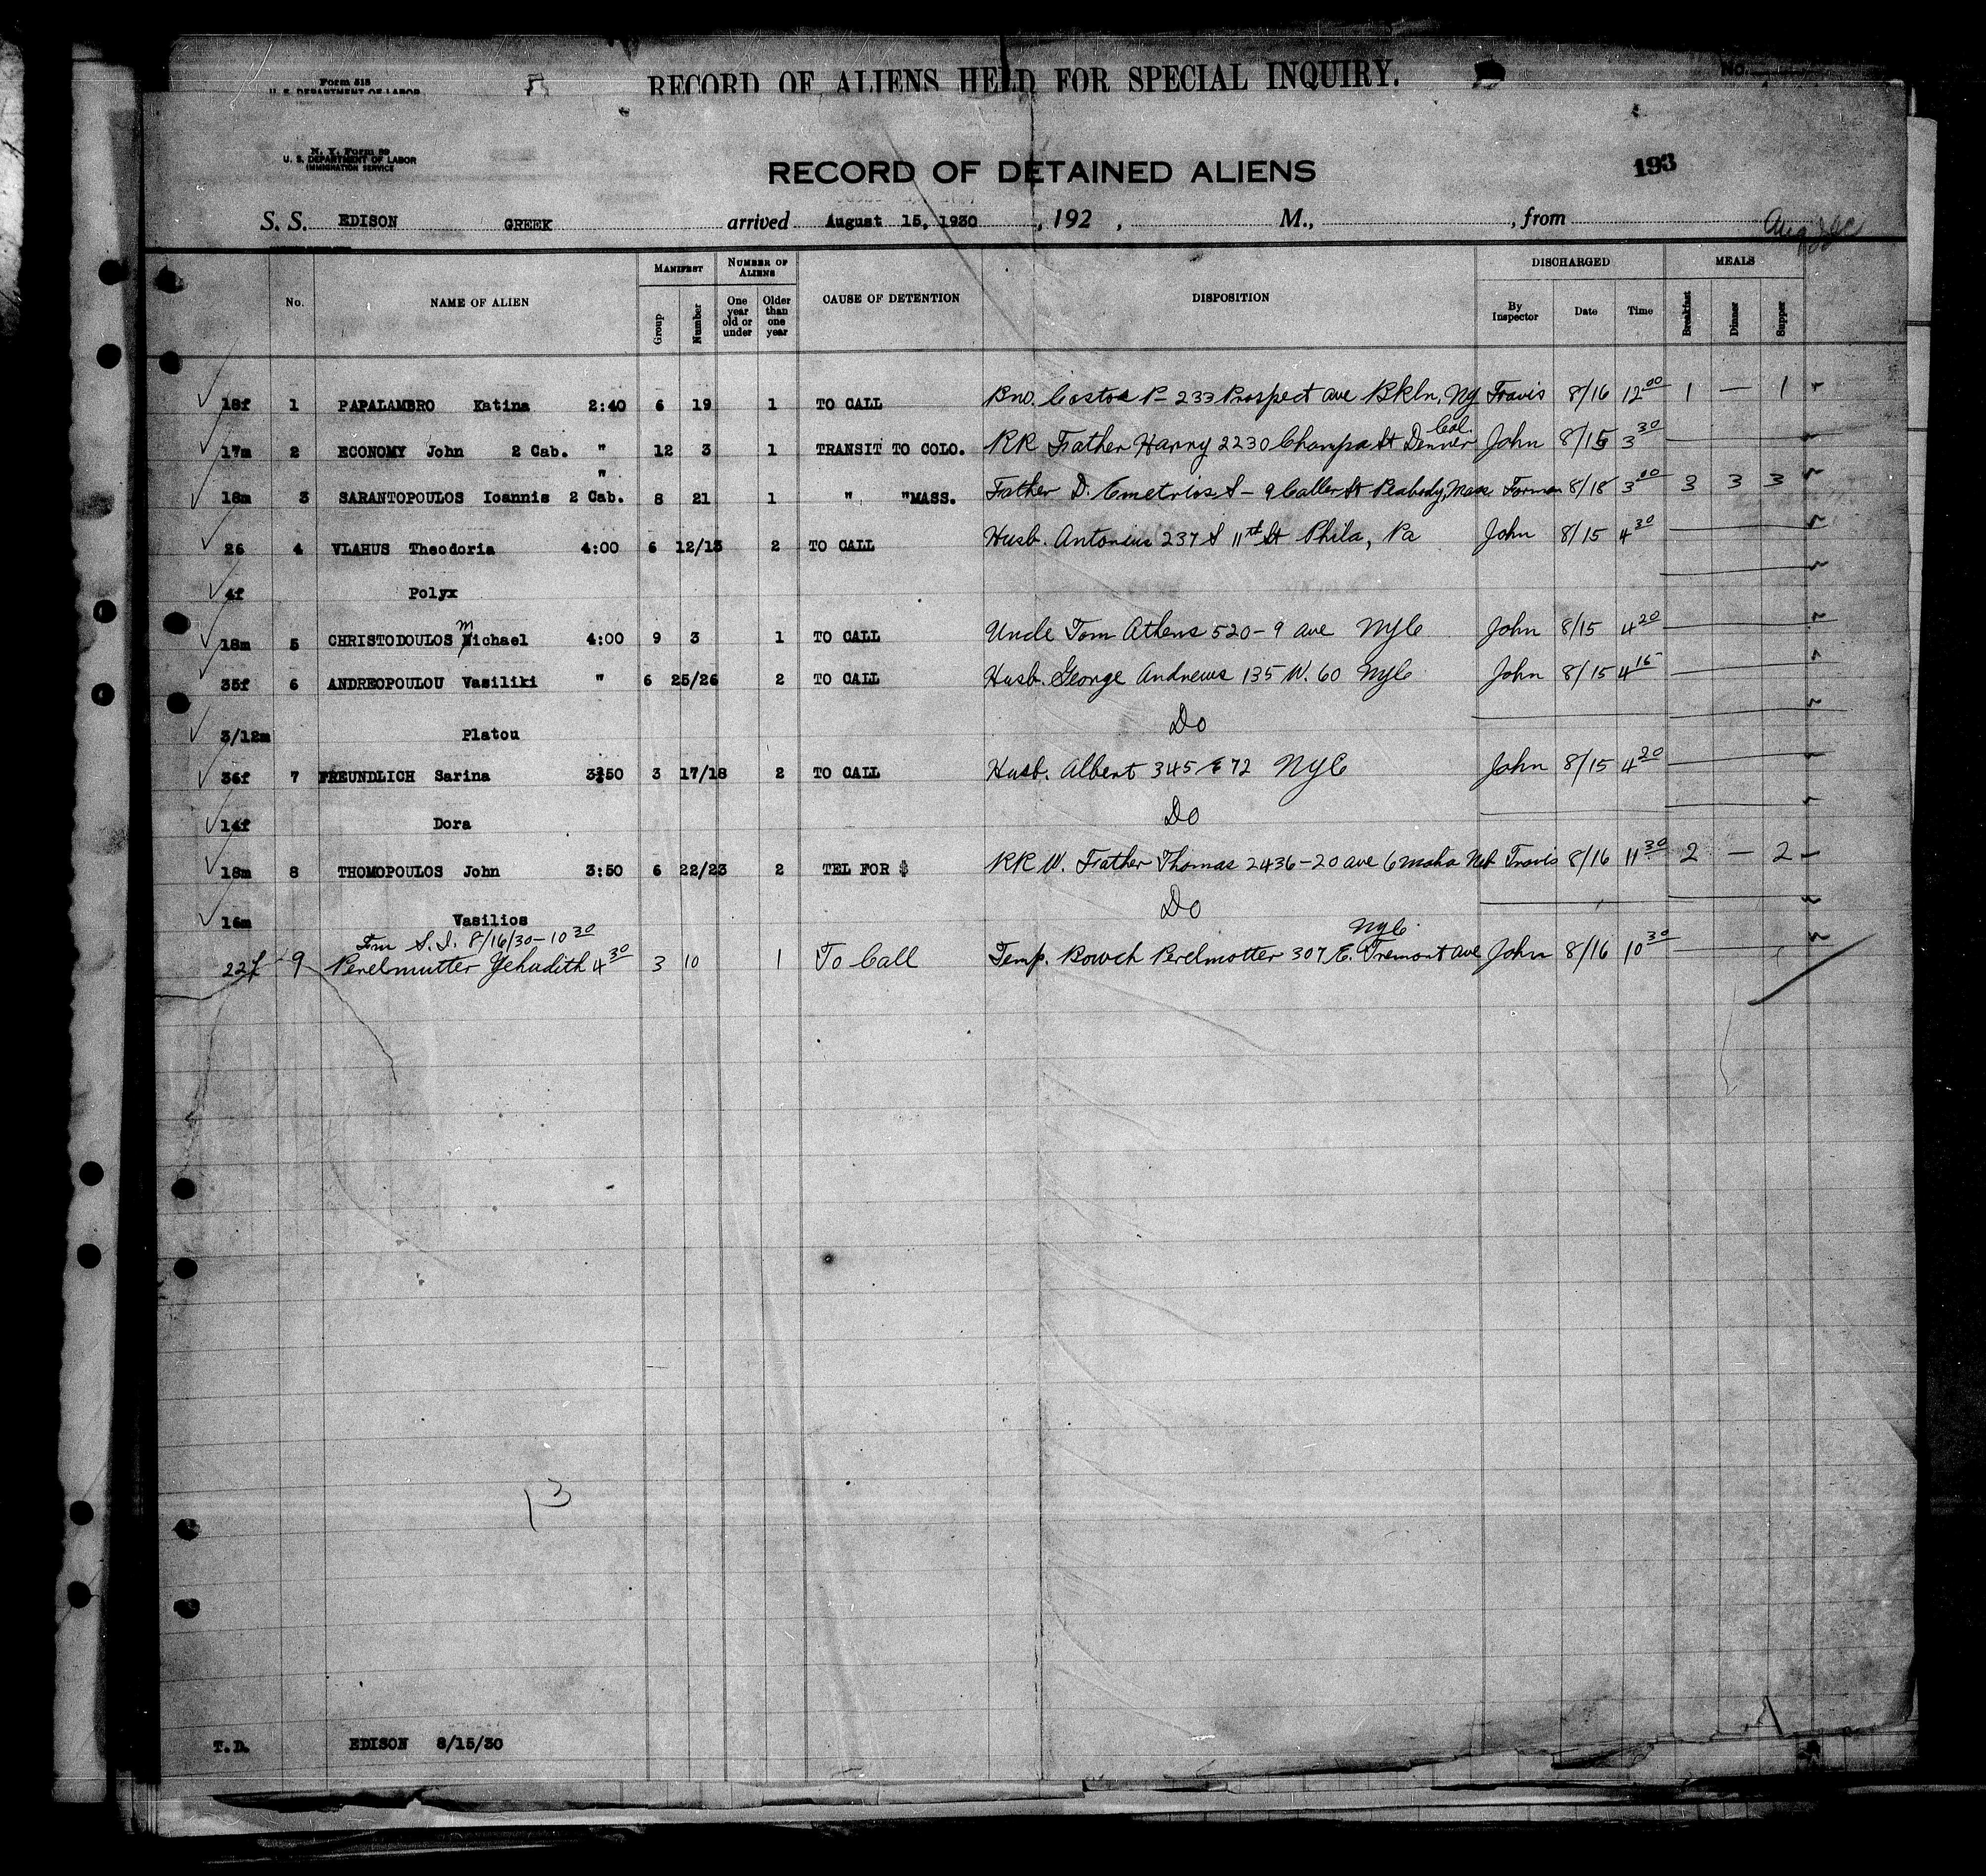 Form 518
U. S. DEPARTMENT OF LABOR
RECORD OF ALIENS HELD FOR SPECIAL INQUIRY.
No.
N. Y. Form 89
U. S. DEPARTMENT OF LABOR
IMMIGRATION SERVICE
RECORD OF DETAINED ALIENS
193
S. S. EDISON GREEK arrived August 15, 1930, 192 , M., , from
No. NAME OF ALIEN MANIFEST NUMBER OF ALIENS CAUSE OF DETENTION DISPOSITION DISCHARGED MEALS
Group Number One year old or under Older than one year By Inspector Date Time Breakfast Dinner Supper
18f 1 PAPALAMBRO Katina 2:40 6 19 1 TO CALL Bro. Costos P- 233 Prospect ave Bkln, Ny Travis 8/16 12 00 1 — 1
17m 2 ECONOMY John 2 Cab. " 12 3 1 TRANSIT TO COLO. RR Father Harry 2230 Champa St Denver Col. John 8/15 3 30
18m 3 SARANTOPOULOS Ioannis 2 Cab. " 8 21 1 " " MASS. Father D. Emetrios S - 9 Caller St Peabody, Mass Forman 8/18 3 00 3 3 3
26 4 VLAHUS Theodoria 4:00 6 12/13 2 TO CALL Husb. Antonius 237 S 11th St Phila, Pa John 8/15 4 30
4f Polyx
18m 5 CHRISTODOULOS Michael 4:00 9 3 1 TO CALL Uncle Tom Athens 520-9 ave NyC John 8/15 4 20
35f 6 ANDREOPOULOU Vasiliki " 6 25/26 2 TO CALL Husb. George Andrews 135 W. 60 NyC John 8/15 4 15
3/12m Platou Do
36f 7 FREUNDLICH Sarina 3:50 3 17/18 2 TO CALL Husb. Albert 345 E 72 NyC John 8/15 4 20
14f Dora Do
18m 8 THOMOPOULOS John 3:50 6 22/23 2 TEL FOR $ RR W. Father Thomas 2436-20 ave Omaha Neb Travis 8/16 11 30 2 — 2
16m Vasilios Do
Fm S.I. 8/16/30-10 30
22f 9 Perelmutter Yehudith 4 30 3 10 1 To Call Temp. Bowch Perelmotter 307 E. Tremont ave NyC John 8/16 10 30
13
T.D. EDISON 8/15/30